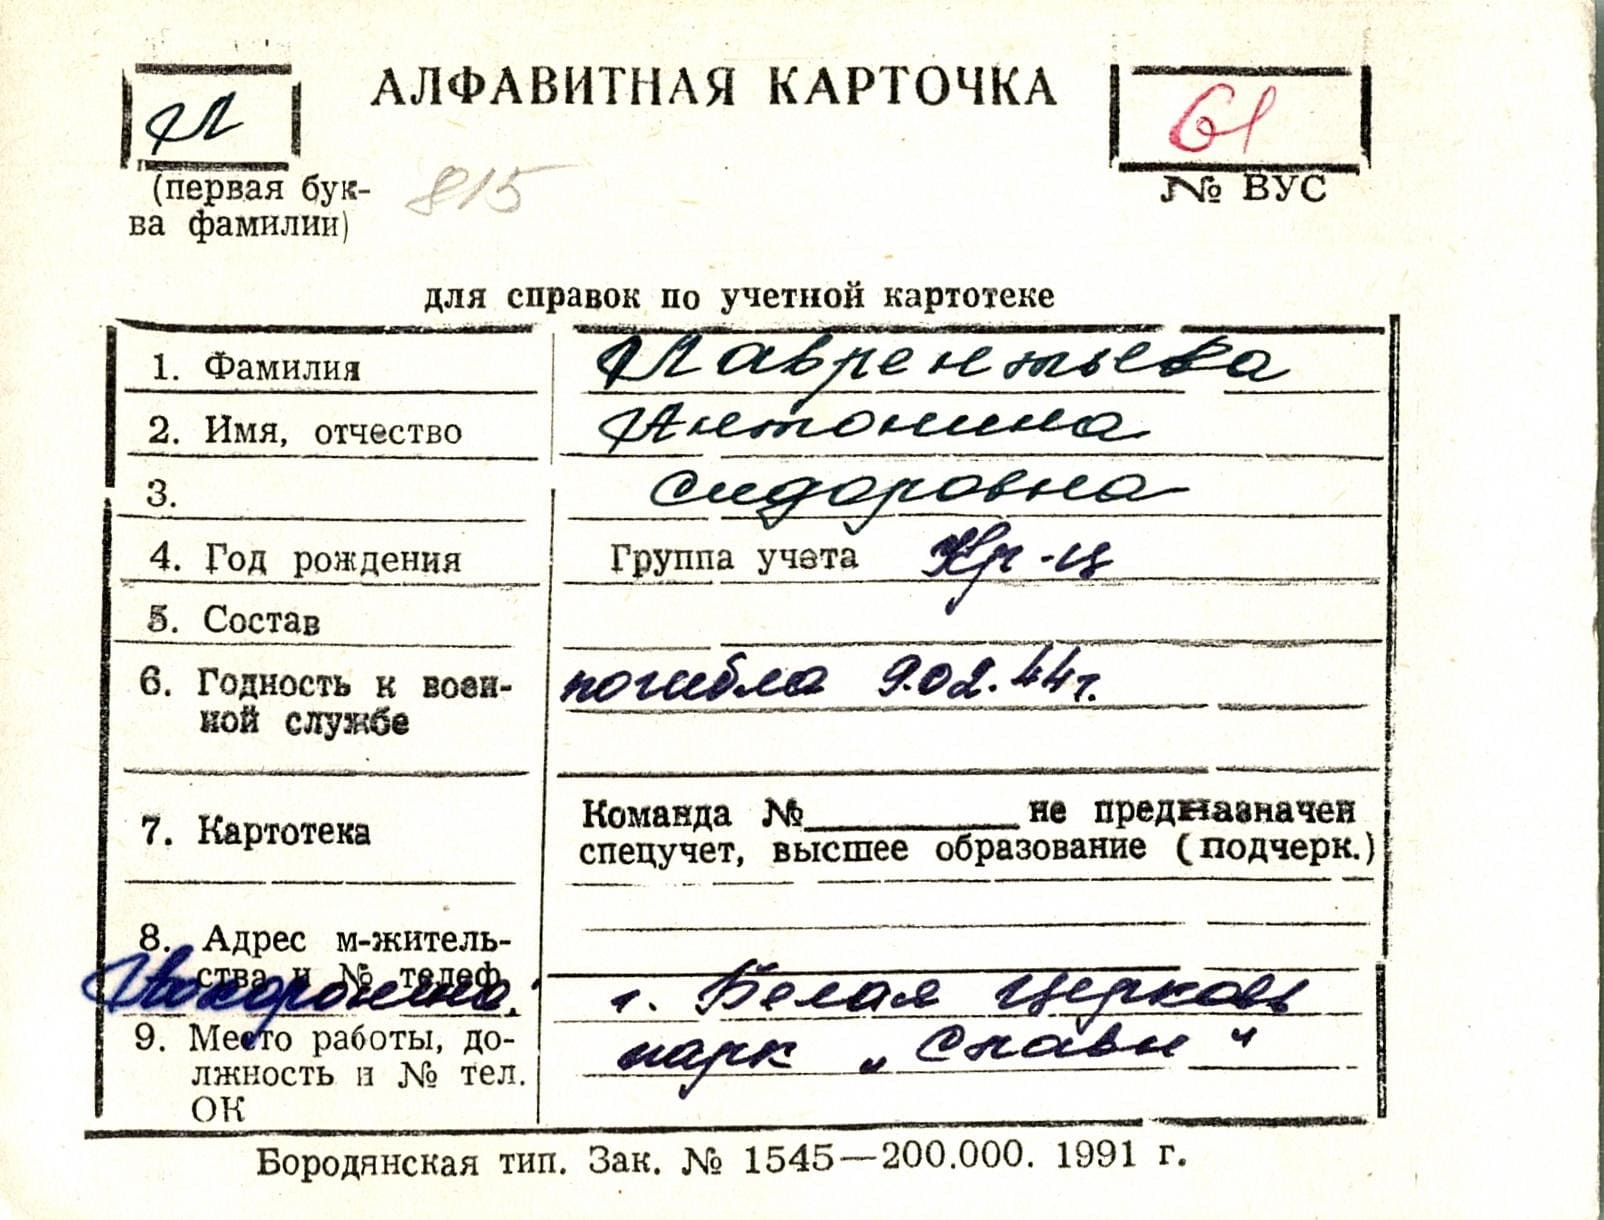 Л
АЛФАВИТНАЯ КАРТОЧКА
61
(первая бук-
ва фамилии)
815
№ ВУС
для справок по учетной картотеке
1. Фамилия Лаврентьева
2. Имя, отчество Антонина
3. Сидоровна
4. Год рождения Группа учета Кр-ц
5. Состав
6. Годность к воен- погибла 9.02.44г.
ной службе
7. Картотека Команда № не предназначен
спецучет, высшее образование (подчерк.)
8. Адрес м-житель-
ства и № телеф.
Похоронена. г. Белая Церковь
9. Место работы, до- парк „Славы"
лжность и № тел.
ОК
Бородянская тип. Зак. № 1545—200.000. 1991 г.